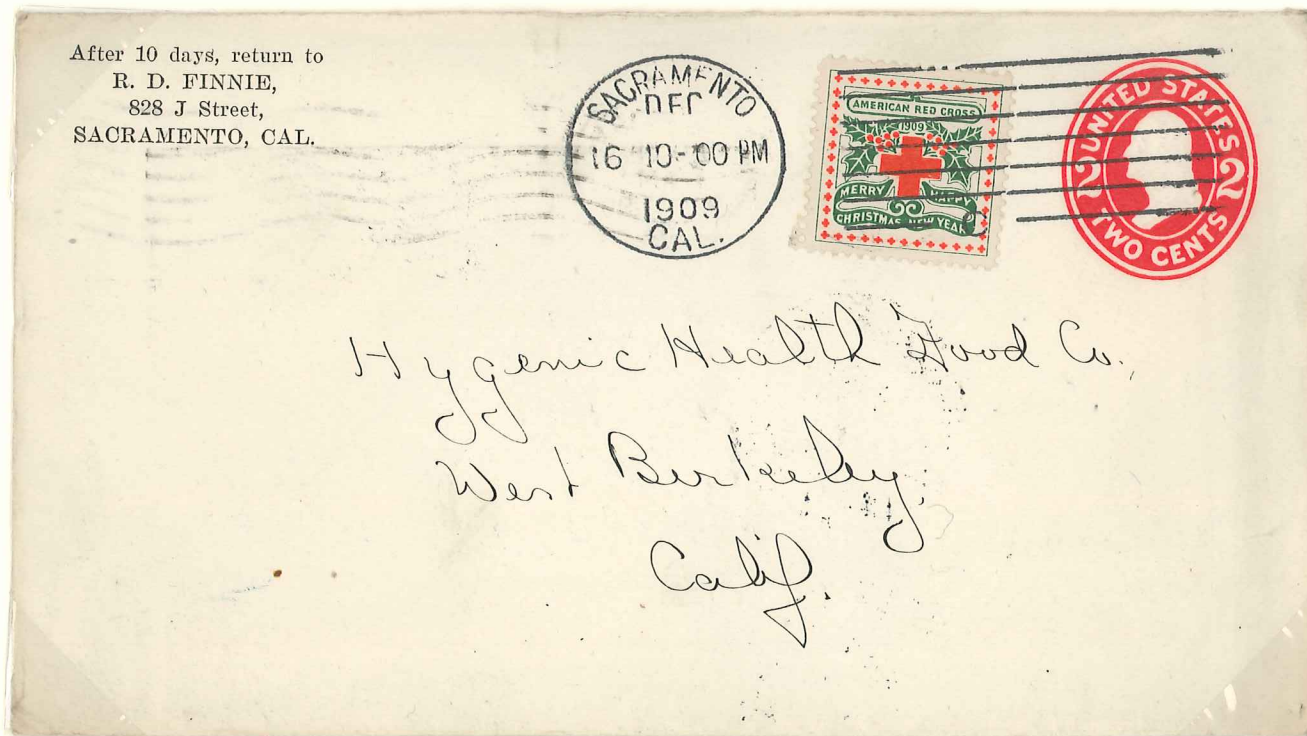 After 10 days, return to
R. D. FINNIE,
828 J Street,
SACRAMENTO, CAL.
SACRAMENTO
DEC
16 10-00 PM
1909
CAL.
AMERICAN RED CROSS
1909
MERRY HAPPY
CHRISTMAS NEW YEAR
UNITED STATES
2 2
TWO CENTS
Hygenic Health Food Co.,
West Berkeley,
Calif.